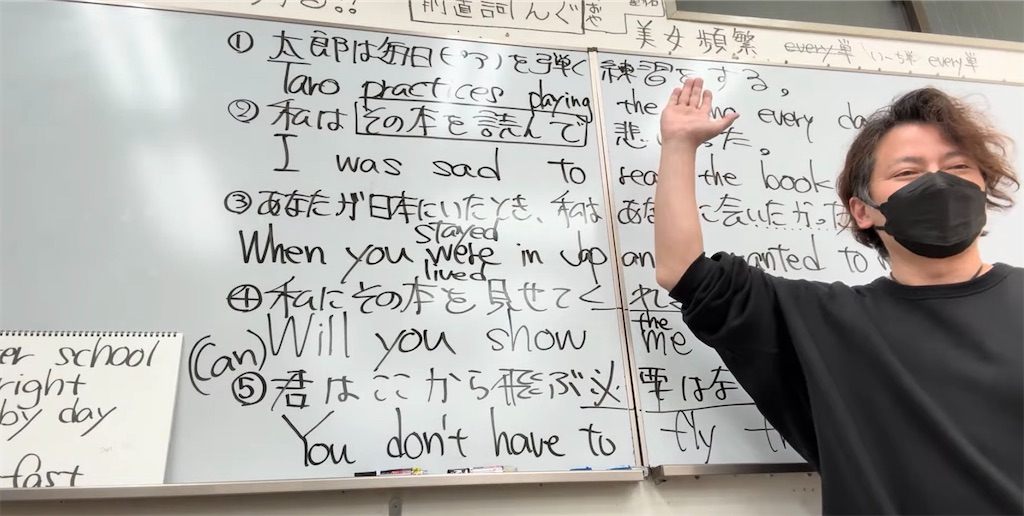 前置詞 んぐ
美女 頻繁 every単
① 太郎は毎日(ピアノ)を弾く練習をする。
Taro practices playing the every
② 私はその本を読んで悲
I was sad to the book
③ あなたが日本にいたとき、私はあなたに会いたかった
stayed
When you were in Jap wanted to
lived
④ 私にその本を見せてくれ
the
(Can) Will you show me
⑤ 君はここから飛ぶ必要はな
You don't have to fly
er school
right
by day
fast